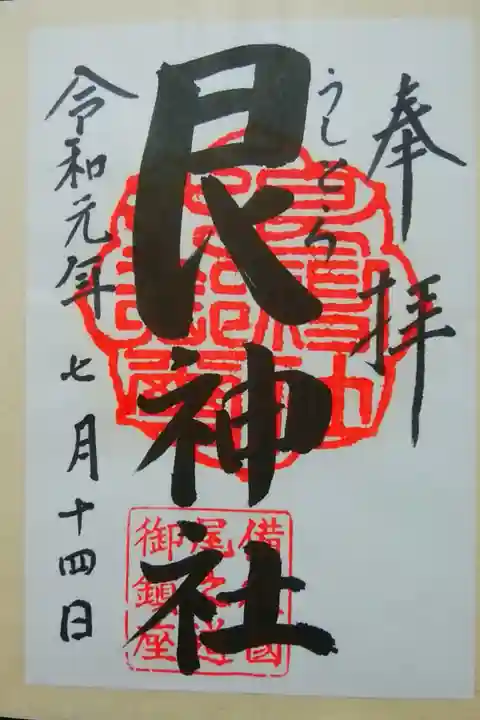 奉拝
うしとら
艮神社
令和元年七月十四日
備 國
尾 道
御鎮座